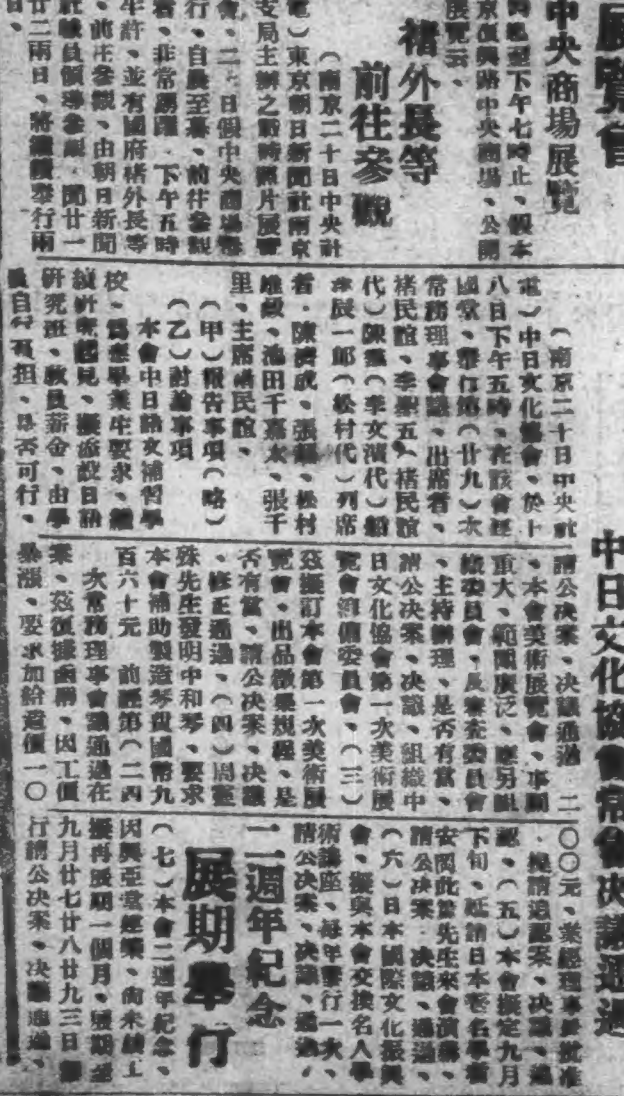 展覽會
中央商場展覽
時起至下午七時止、假本
京復興路中央商場、公開
展覽云、
褚外長等
前往參觀
（南京二十日中央社
電）東京朝日新聞社南京
支局主辦之戰時照片展覽
會、二十日假中央商場舉
行、自晨至暮、前往參觀
者、非常踴躍、下午五時
半許、並有國府褚外長等
、前往參觀、由朝日新聞
社職員領導參觀、聞廿一
廿二兩日、將繼續舉行兩
日、
中日文化協會常務決議通過
（南京二十日中央社
電）中日文化協會、於十
八日下午五時、在該會經
國堂、舉行第（廿九）次
常務理事會議、出席者、
褚民誼、李聖五（褚民誼
代）陳羣（李文濱代）船
津辰一郎（松村代）列席
者、陳濟成、張超、松村
雄藏、池田千嘉太、張千
里、主席褚民誼、
（甲）報告事項（略）
（乙）討論事項
本會中日語文補習學
校、為應畢業生要求、繼
續研究起見、擬添設日語
研究班、教員薪金、由學
員自行負担、是否可行、
請公決案、決議通過 二
、本會美術展覽會、事關
重大、範圍廣泛、應另設
籌委員會、及審查委員會
、主持辦理、是否有當、
請公決案、決議、組織中
日文化協會第一次美術展
覽會籌備委員會、（三）
茲擬訂本會第一次美術展
覽會、出品徵集規程、是
否有當、請公決案、決議
、修正通過、（四）周
殊先生發明中和琴、要求
本會補助製造琴費國幣九
百六十元 前經第（二四
次常務理事會議通過在
案、茲復據函稱、因工價
暴漲、要求加給造價一〇
〇〇元、業經理事長批准
、提請追認案、決議、追
認、（五）本會擬定九月
下旬、延請日本著名學者
安岡 先生來會演講、
請公決案、決議、通過、
（六）日本國際文化振興
會、擬與本會交換名人學
術講座、每年舉行一次、
請公決案、決議、通過、
二週年紀念
展期舉行
（七）本會二週年紀念、
因興亞堂建築、尚未竣工
擬再展期一個月、展期至
九月廿七廿八廿九三日舉
行請公決案、決議通過、